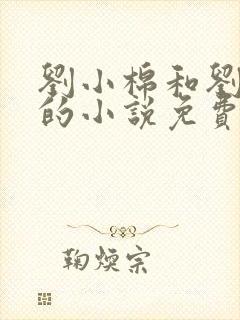 劉小棉和劉
的小說免費
鞠煐宗